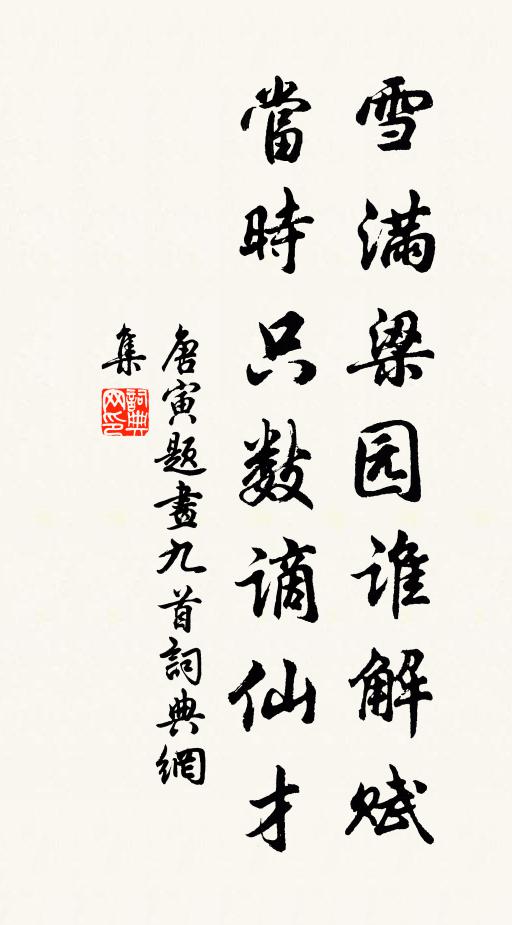 雪满梁园谁解赋
當時只数谪仙才
唐寅题畫九首詞典網
集
詞典
网印